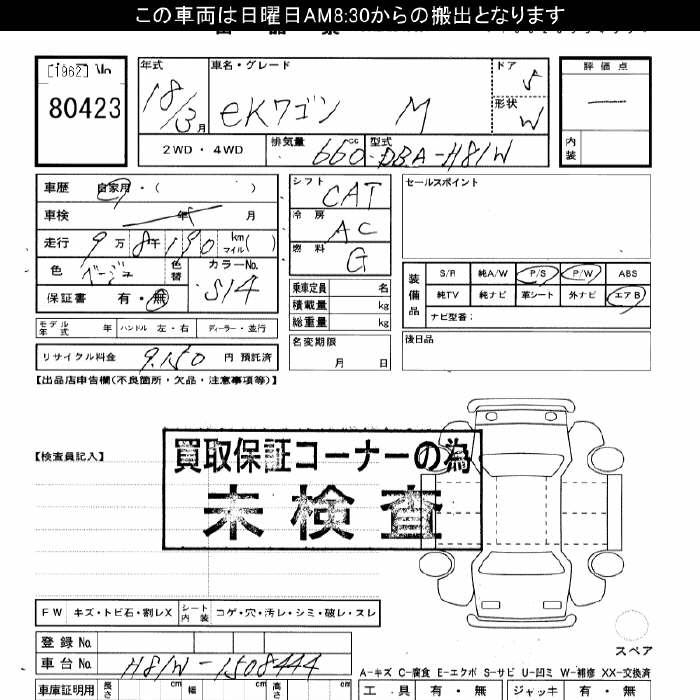 この車両は日曜日AM8:30からの搬出となります
[1962] No
80423
年式 車名・グレード ドア 評価点
18/3月 eKワゴン M 5
形状 W
内装
2WD・4WD 排気量 660cc 型式 DBA-H81W
車歴 自家用・( )
車検 年 月
走行 9万8千190 km マイル( )
色 ベージュ 色替 カラーNo. S14
保証書 有・無
モデル年式 年 ハンドル 左・右 ディーラー・並行
リサイクル料金 9,150 円 預託済
シフト CAT
冷房 AC
燃料 G
乗車定員 名
積載量 kg
総重量 kg
名変期限
月 日
セールスポイント
装備品 S/R 純A/W P/S P/W ABS
純TV 純ナビ 革シート 外ナビ エアB
ナビ型番:
後日品
【出品店申告欄(不良箇所・欠品・注意事項等)】
【検査員記入】
買取保証コーナーの為
未検査
FW キズ・トビ石・割レX シート内装 コゲ・穴・汚レ・シミ・破レ・スレ
登録No
車台No H81W-1508444
車庫証明用 長さ cm 幅 cm 高さ cm
スペア
A-キズ C-腐食 E-エクボ S-サビ U-凹ミ W-補修 XX-交換済
工具 有・無 ジャッキ 有・無